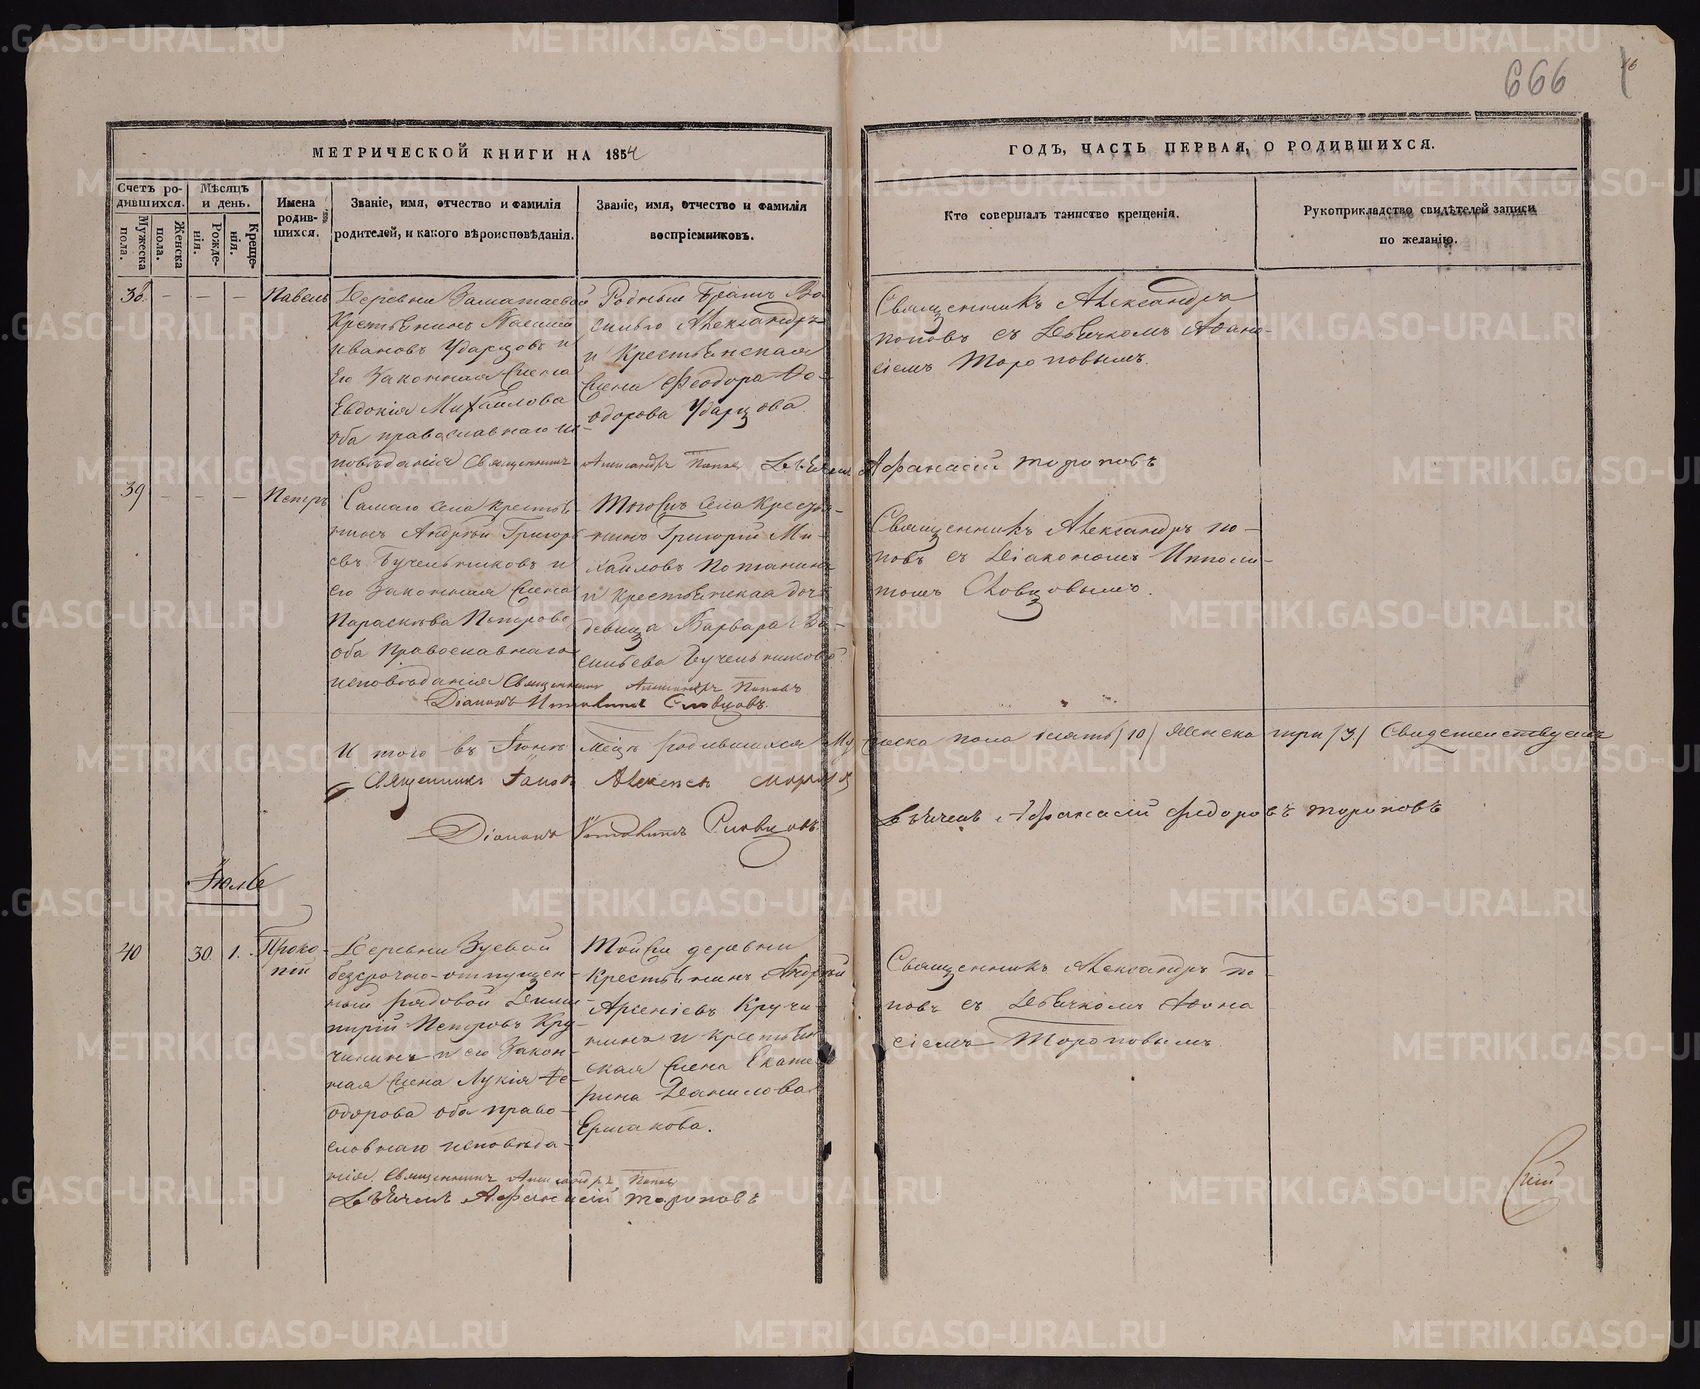 666
МЕТРИЧЕСКОЙ КНИГИ НА 1854
ГОДЪ, ЧАСТЬ ПЕРВАЯ, О РОДИВШИХСЯ.
Счетъ родившихся.
Мужеска пола.
Женска пола.
Мѣсяцъ и день.
Рожденія.
Крещенія.
Имена родившихся.
Званіе, имя, отчество и фамилія
родителей, и какого вѣроисповѣданія.
Званіе, имя, отчество и фамилія
воспріемниковъ.
Кто совершалъ таинство крещенія.
Рукоприкладство свидѣтелей записи
по желанію.
38. — — — Павелъ
Деревни
Крестьянинъ
Ивановъ Ударцовъ и
Его Законная Жена
Евдокія Михаилова
оба православнаго ис-
повѣданія Священникъ Александръ Поповъ
Родный братъ Ва-
силью Александръ
и Крестьянская
Жена Феодора Ѳе-
одорова Ударцова.
Священникъ Александръ
Поповъ съ Дьячкомъ Аѳана-
сіемъ Тороповымъ.
Дьячекъ Афанасій Тороповъ
39 — — — Петръ
Самаго села Крестья-
нинъ Андрей Григорь-
евъ Бучельниковъ и
его Законная Жена
Параскева Петрова
оба Православнаго
исповѣданія Священникъ Александръ Поповъ
Діаконъ Ипполитъ Словцовъ.
Тогожъ села Крестья-
нинъ Григорій Ми-
хайловъ Потанинъ
и крестьянская дочь
девица Варвара Ва-
сильева Бучельникова.
Священникъ Александръ По-
повъ съ Діакономъ Ипполи-
томъ Словцовымъ.
И того въ Іюнѣ мѣцѣ родившихся мужеска пола десять /10/ Женска три /3/ Свидетельствуемъ
Священникъ Іаковъ Алексѣй
Діаконъ Ипполитъ Словцовъ
Дьячекъ Афанасій Федоровъ Тороповъ
Іюль
40 30 1. Проко-
пій
Деревни Зуевой
безсрочно-отпущен-
ный рядовой Дими-
трій Петровъ Кру-
чининъ и его Закон-
ная Жена Лукія Ѳе-
одорова оба право-
славнаго исповѣда-
нія. Священникъ Александръ Поповъ
Дьячекъ Афанасій Тороповъ
Той же деревни
Крестьянинъ Андрей
Арсеніевъ Кручи-
нинъ и крестьян-
ская Жена Екате-
рина Данилова
Ермакова.
Священникъ Александръ По-
повъ съ Дьячкомъ Аѳана
сіемъ Тороповымъ.
METRIKI.GASO-URAL.RU